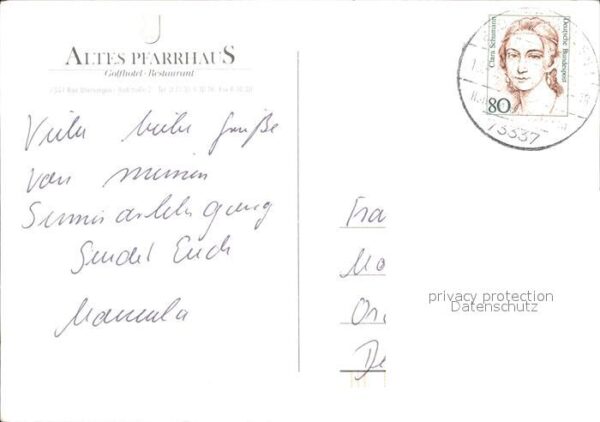 ALTES PFARRHAUS
Golfhotel · Restaurant
Viele liebe Grüße
von meinem
Seminarlehrgang
Sendet Euch
Manuela
Clara Schumann
Deutsche Bundespost
80
73337
Fra
Ma
De
privacy protection
Datenschutz